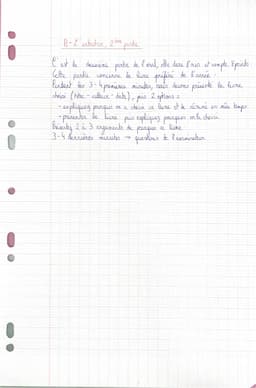 B- L'entretien, 2ème partie
C'est la deuxième partie de l'oral, elle dure 8 min et compte 8 points
Cette partie concerne le livre préféré de l'année.
Pendant les 3-4 premières minutes, nous devons présenter le livre
choisi (titre - auteur - date), puis 2 options :
- expliquer pourquoi on a choisi ce livre et le résumé en même temps
- présenter le livre puis expliquer pourquoi on l'a choisi
2 à 3 arguments de pourquoi ce livre
3-4 dernières minutes → questions de l'examinateur